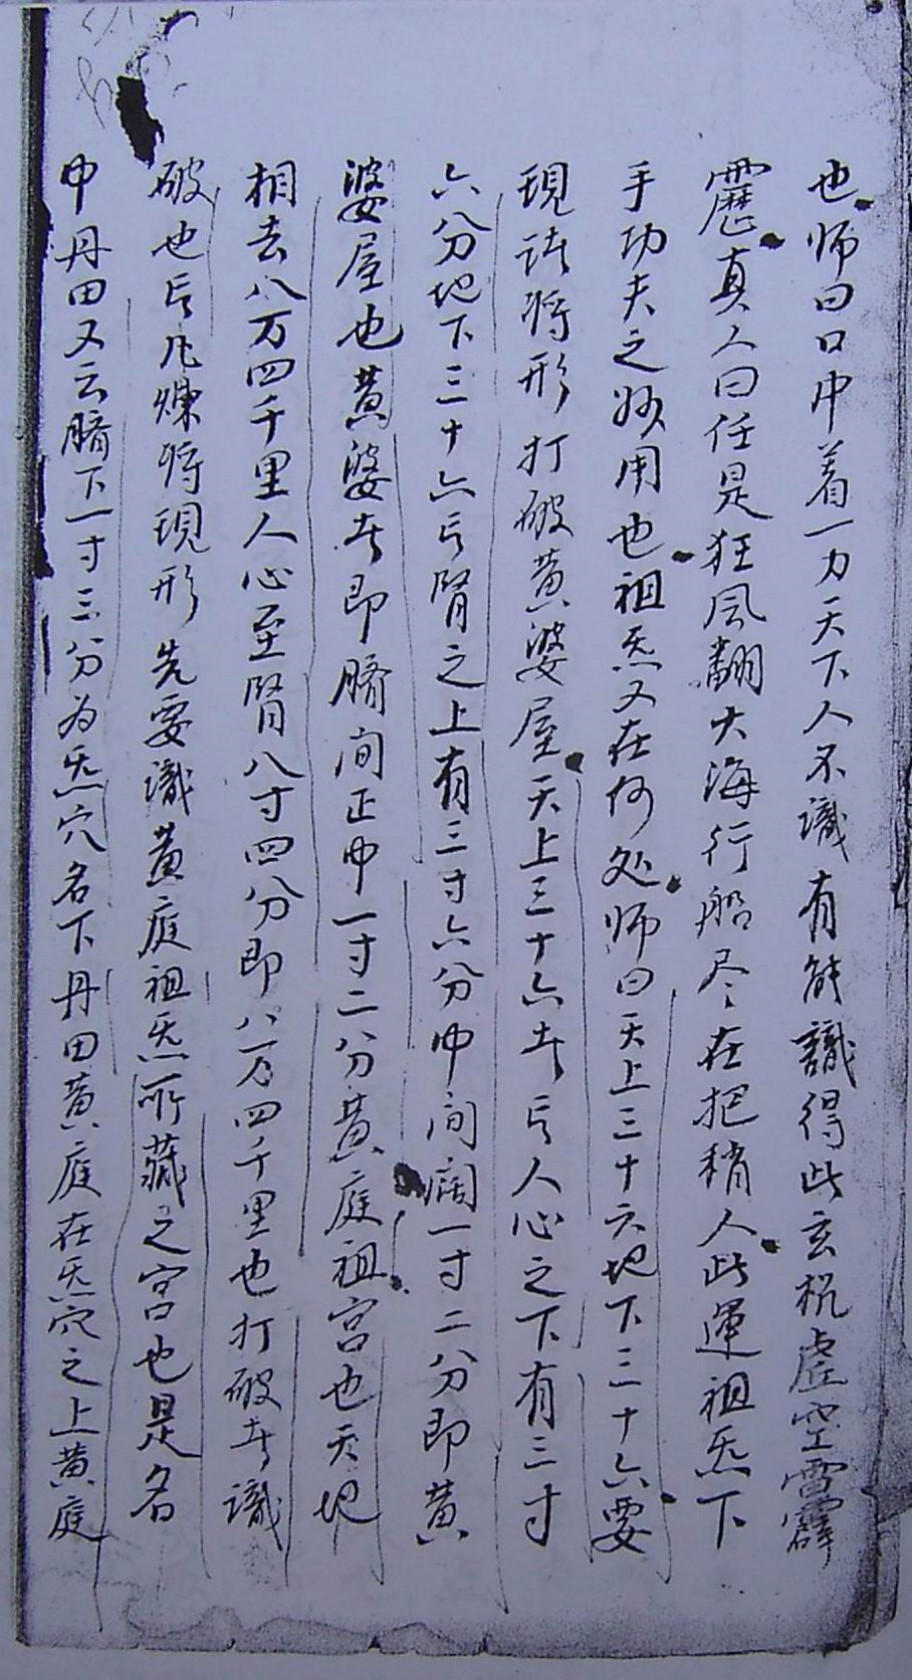 也师曰口中着一力天下人不識有能識得此玄机虚空雷霹
靂真人曰任是狂风翻大海行船尽在把稍人此運祖炁下
手功夫之妙用也祖炁又在何处师曰天上三十六地下三十六要
現諸将形打破黄婆屋天上三十六者人心之下有三寸
六分地下三十六肾之上有三寸六分中间阔一寸二分即黄
婆屋也黄婆者即臍间正中一寸二分黄庭祖宫也天地
相去八万四千里人心至腎八寸四分即八万四千里也打破者識
破也凡煉将現形先要識黄庭祖炁所藏之宮也是名
中丹田又云臍下一寸三分为炁穴名下丹田黄庭在炁穴之上黄庭